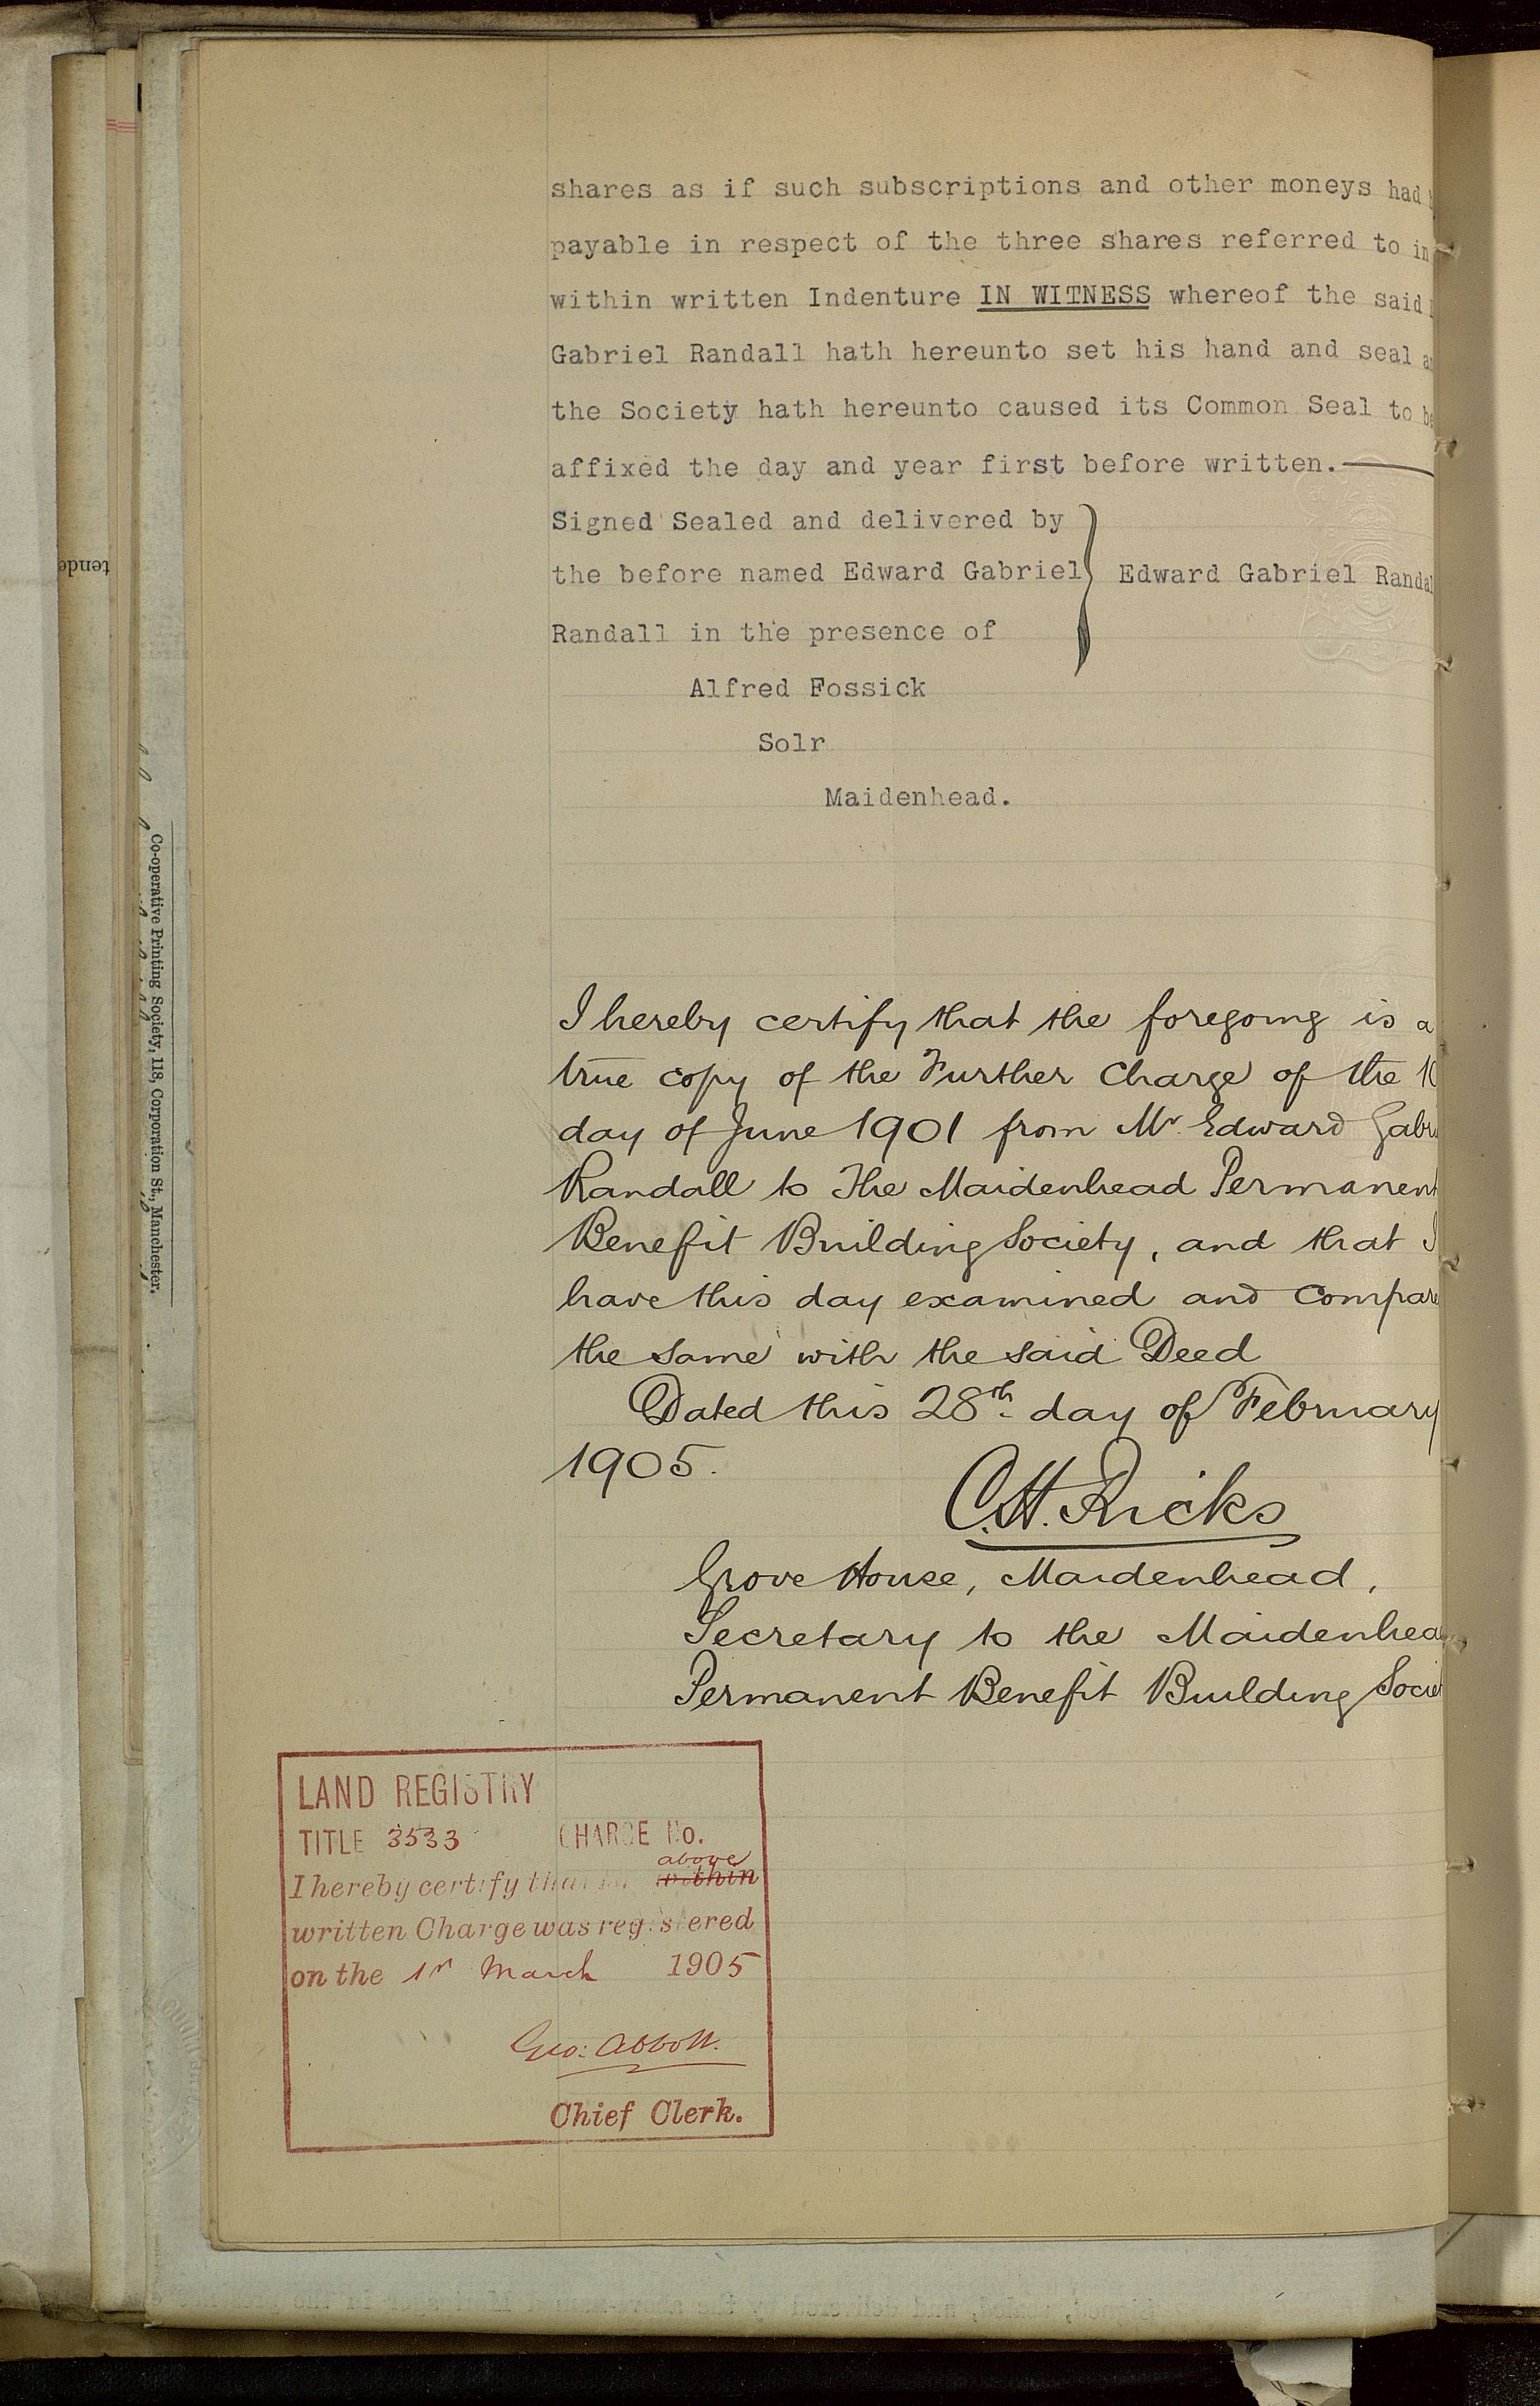 shares as if such subscriptions and other moneys had
payable in respect of the three shares referred to in
within written Indenture IN WITNESS whereof the said
Gabriel Randall hath hereunto set his hand and seal
the Society hath hereunto caused its Common Seal to be
affixed the day and year first before written.
Signed Sealed and delivered by
the before named Edward Gabriel
Edward Gabriel Randal
Randall in the presence of
Alfred Fossick
Solr
Maidenhead.
I hereby certify that the foregoing is a
true copy of the Further Charge of the 10
day of June 1901 from Mr. Edward Gabri
Randall to The Maidenhead Permanent
Benefit Building Society, and that I
have this day examined and compare
the same with the said Deed
Dated this 28th day of February
1905.
C.H. Ricks
Grove House, Maidenhead,
Secretary to the Maidenhea
Permanent Benefit Building Societ
LAND REGISTRY
TITLE 3533 CHARGE No.
above
I hereby certify that the within
written Charge was registered
on the 1st March 1905
Geo: Abbott.
Chief Clerk.
tende
Co-operative Printing Society, 118, Corporation St., Manchester.